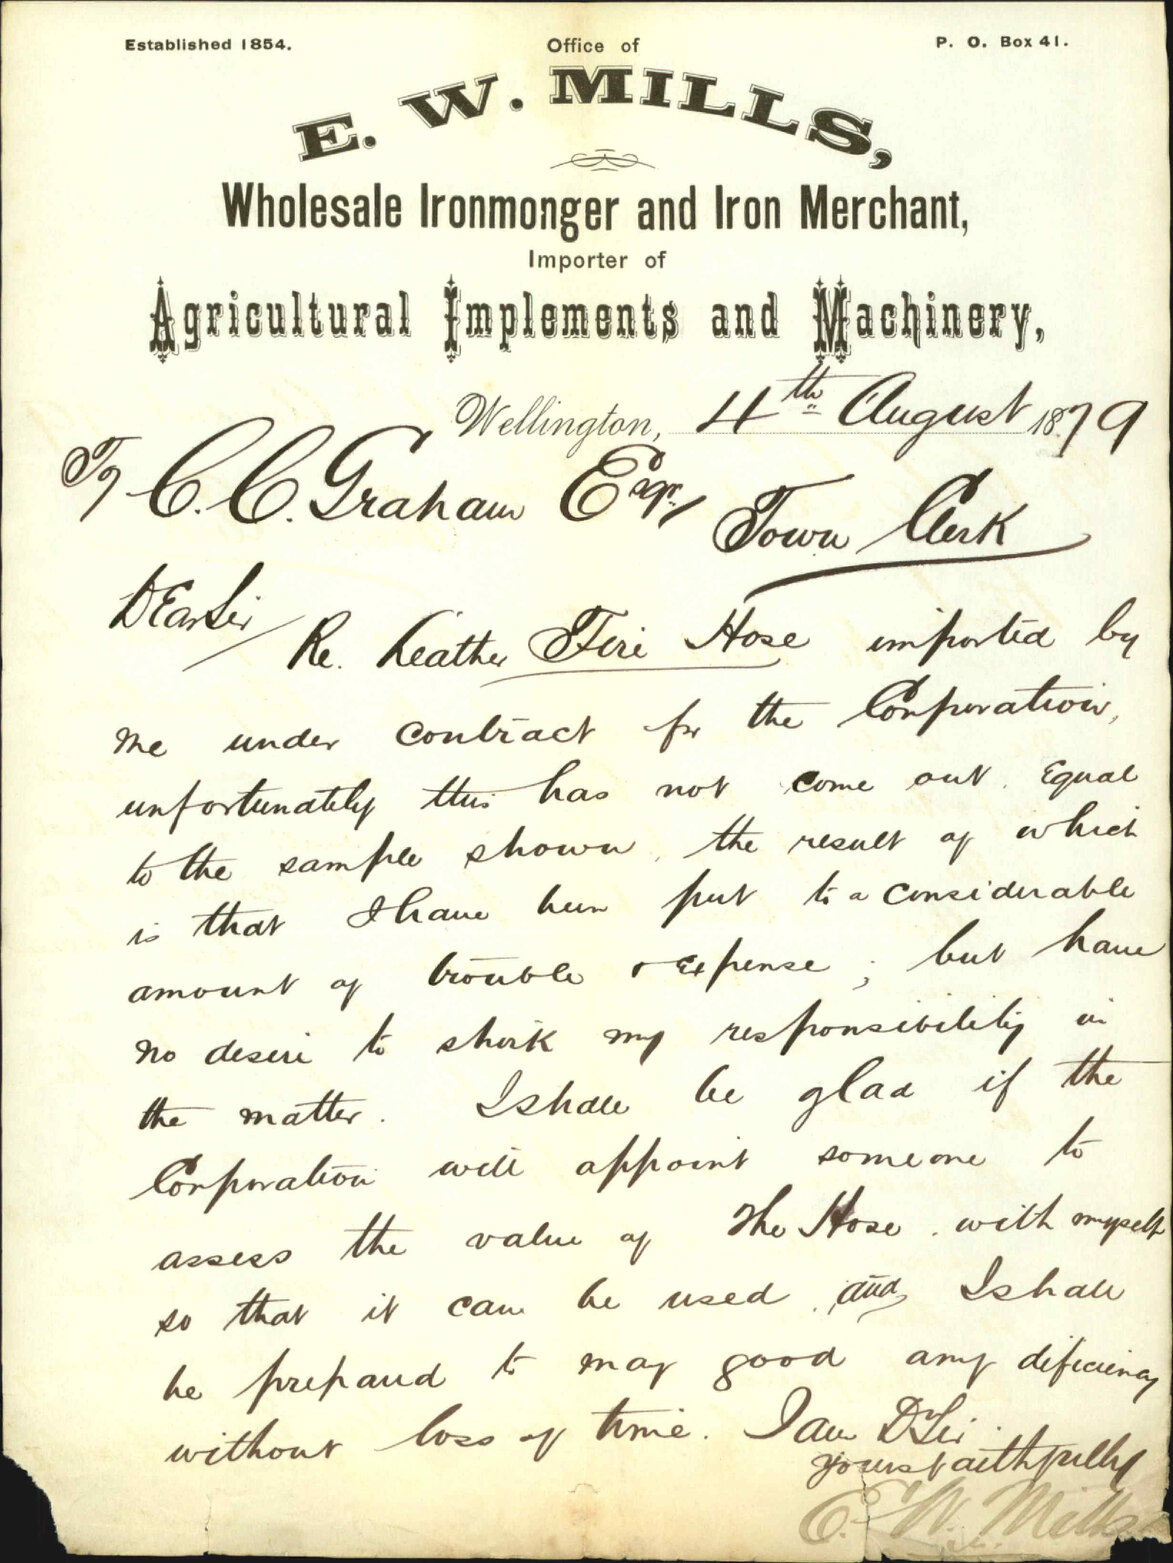 Established 1854.
Office of
P. O. Box 41.
E. W. MILLS,
Wholesale Ironmonger and Iron Merchant,
Importer of
Agricultural Implements and Machinery,
Wellington, 4th August 1879
To C. C. Graham Esqr.,
Town Clerk
Dear Sir
Re. Leather Fire Hose imported by
me under contract for the Corporation,
unfortunately this has not come out equal
to the sample shown, the result of which
is that I have been put to a considerable
amount of trouble & expense; but have
no desire to shirk my responsibility in
the matter. I shall be glad if the
Corporation will appoint someone to
assess the value of the Hose. with myself
so that it can be used, and, I shall
be prepared to may good any deficiency
without loss of time. I am D Sir
yours faithfully
E. W. Mills